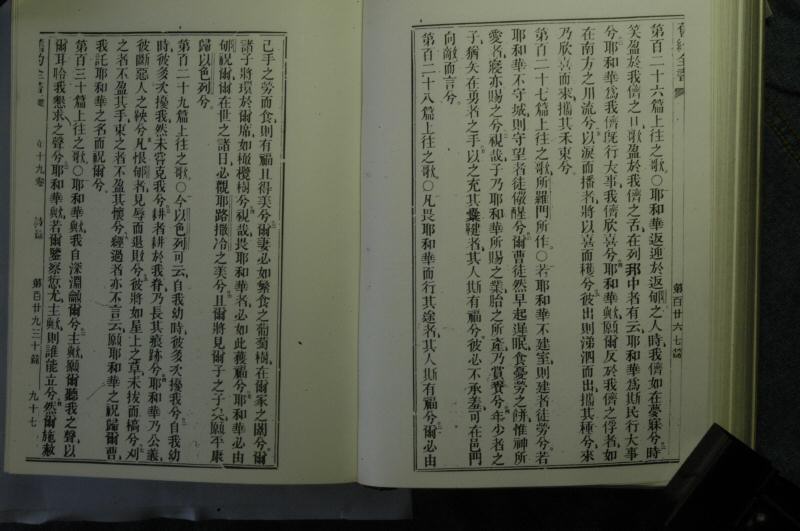 舊約全書
第百廿六七篇
第百二十六篇上往之歌○耶和華返連於返郇之人時我儕如在夢寐兮時
笑盈於我儕之口歌盈於我儕之舌在列邦中者有云耶和華為斯民行大事
兮耶和華為我儕既行大事我儕欣喜兮耶和華歟願爾反於我儕之俘者如
在南方之川流兮以淚而播者將以喜而穫兮彼出則涕泗而出攜其種兮來
乃欣喜而來攜其禾束兮
第百二十七篇上往之歌所羅門所作○若耶和華不建室則建者徒勞兮若
耶和華不守城則守望者徒儆醒兮爾曹徒然早起遲眠食憂勞之餅惟神所
愛者寢亦賜之兮視哉子乃耶和華所賜之業胎之所產乃賞賚兮年少者之
子猶矢在勇者之手以之充其櫜鞬者其人斯有福兮彼必不承羞可在邑門
向敵而言兮
第百二十八篇上往之歌○凡畏耶和華而行其途者其人斯有福兮爾必由
己手之勞而食則有福且得美兮爾妻必如繁食之葡萄樹在爾家之閫兮爾
諸子將環於爾席如橄欖樹兮視哉畏耶和華者必如此獲福兮耶和華必由
郇祝爾爾在世之諸日必觀耶路撒冷之美兮且爾將見爾子之子矣願平康
歸以色列兮
第百二十九篇上往之歌○今以色列可云自我幼時彼多次擾我兮自我幼
時彼多次擾我然未嘗克我兮耕者耕於我脊乃長其痕跡兮耶和華乃公義
彼斷惡人之鞅兮凡恨郇者見辱而退败兮彼將如屋上之草未拔而槁兮刈
之者不盈其手束之者不盈其懷兮經過者亦不言云願耶和華之祝歸爾曹
我託耶和華之名而祝爾兮
第百三十篇上往之歌○耶和華歟我自深淵籲爾兮主歟願爾聽我之聲以
爾耳聆我懇求之聲兮耶和華歟若爾鑒察愆尤主歟則誰能立兮然爾施赦
十九卷
詩篇
第百廿九三十篇
九十七